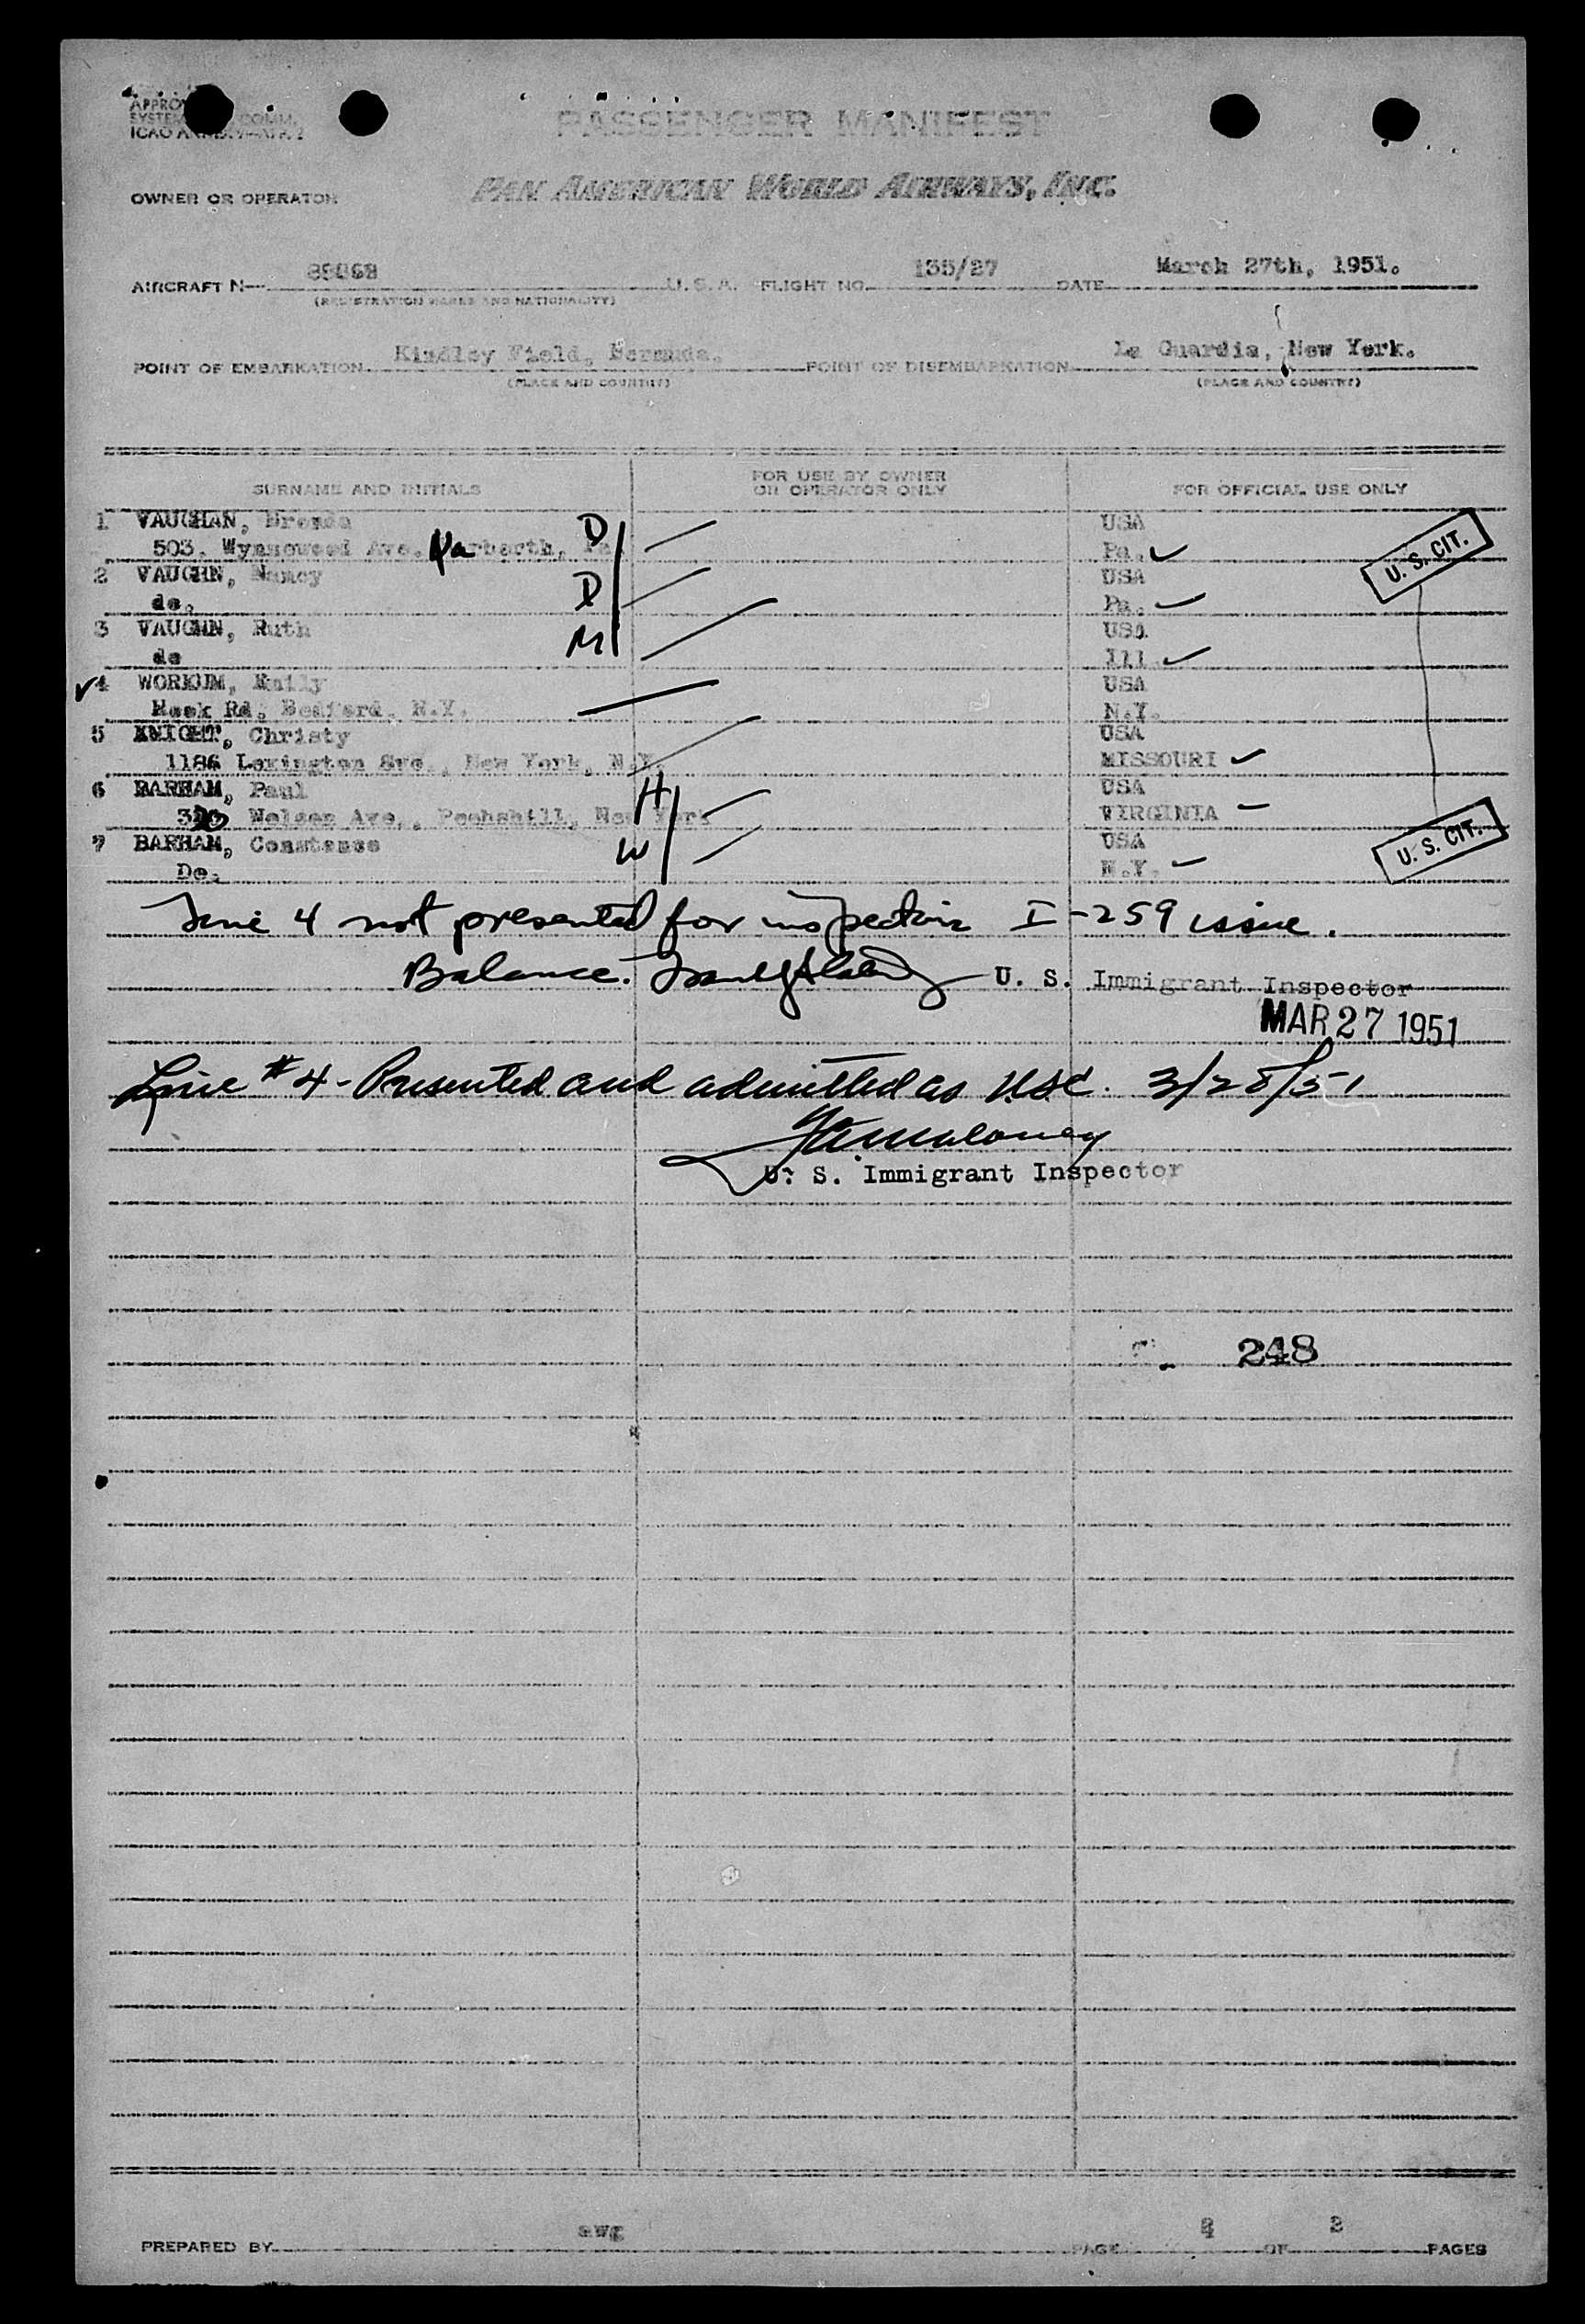 PASSENGER MANIFEST
OWNER OR OPERATOR PAN AMERICAN WORLD AIRWAYS, INC.
AIRCRAFT N— U.S.A. FLIGHT NO. 135/27 DATE March 27th, 1951.
(REGISTRATION MARKS AND NATIONALITY)
POINT OF EMBARKATION Kindley Field, Bermuda. POINT OF DISEMBARKATION La Guardia, New York.
(PLACE AND COUNTRY) (PLACE AND COUNTRY)
SURNAME AND INITIALS FOR USE BY OWNER OR OPERATOR ONLY FOR OFFICIAL USE ONLY
1 VAUGHAN, Brenda D USA
503. Wynnewood Ave. Narberth, Pa. Pa. U. S. CIT.
2 VAUGHN, Nancy D USA
do. Pa.
3 VAUGHN, Ruth M USA
do Ill.
4 WORKUM, Emily USA
Hook Rd, Bedford, N.Y. N.Y.
5 KNIGHT, Christy USA
1186 Lexington Ave., New York, N.Y. MISSOURI
6 BARHAM, Paul H USA
Nelson Ave., Peekskill, New York VIRGINIA
7 BARHAM, Constance W USA U. S. CIT.
Do. N.Y.
Line 4 not presented for inspection I-259 issue.
Balance. U. S. Immigrant Inspector
MAR 27 1951
Line #4 - Presented and admitted as USC. 3/28/51
U. S. Immigrant Inspector
248
PREPARED BY awg PAGE 2 OF 2 PAGES